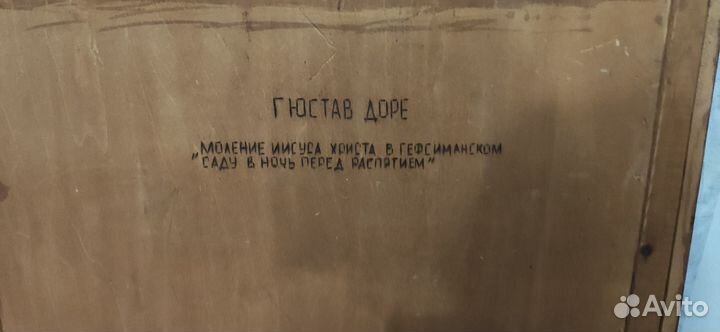 ГЮСТАВ ДОРЕ
„МОЛЕНИЕ ИИСУСА ХРИСТА В ГЕФСИМАНСКОМ
САДУ В НОЧЬ ПЕРЕД РАСПЯТИЕМ"
Avito